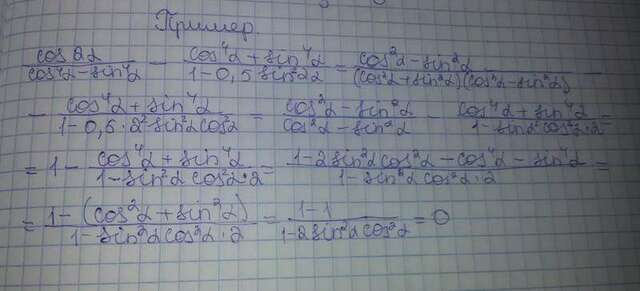 Пример
cos2α/(cos⁴α - sin⁴α) - (cos⁴α + sin⁴α)/(1 - 0,5 sin²2α) = (cos²α - sin²α)/((cos²α + sin²α)(cos²α - sin²α)) -
- (cos⁴α + sin⁴α)/(1 - 0,5·2² sin²α cos²α) = (cos²α - sin²α)/(cos²α - sin²α) - (cos⁴α + sin⁴α)/(1 - sin²α cos²α·2) =
= 1 - (cos⁴α + sin⁴α)/(1 - sin²α cos²α·2) = (1 - 2sin²α cos²α - cos⁴α - sin⁴α)/(1 - sin²α cos²α·2) =
= (1 - (cos²α + sin²α))/(1 - sin²α cos²α·2) = (1 - 1)/(1 - 2sin²α cos²α) = 0